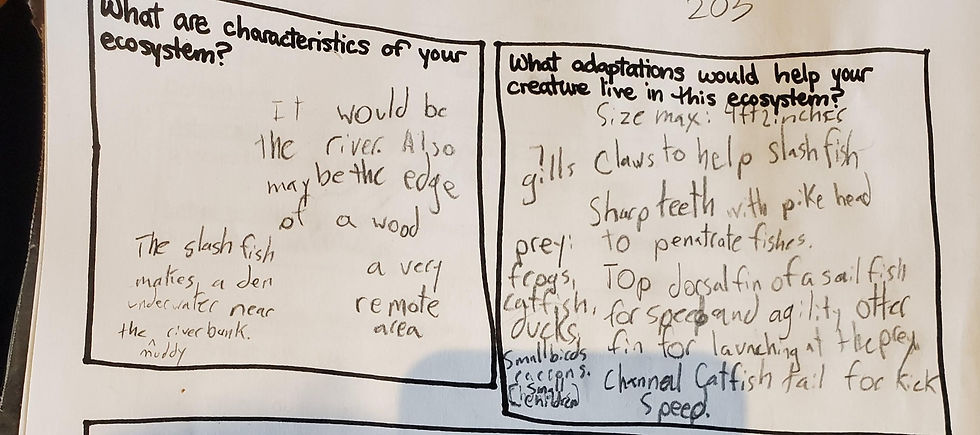 205
What are characteristics of your
ecosystem?
It would be
the river. Also
maybe the edge
of a wood
a very
remote
area
The slash fish
makes a den
underwater near
the muddy riverbank.
What adaptations would help your
creature live in this ecosystem?
Size max: 4ft 2inches
gills
Claws to help slash fish
Sharp teeth with pike head
to penatrate fishes.
Top dorsal fin of a sail fish
for speed and agility otter
fin for launching at the prey.
Channel Catfish tail for kick
speed.
prey:
frogs,
catfish,
ducks,
small birds
[small
children]